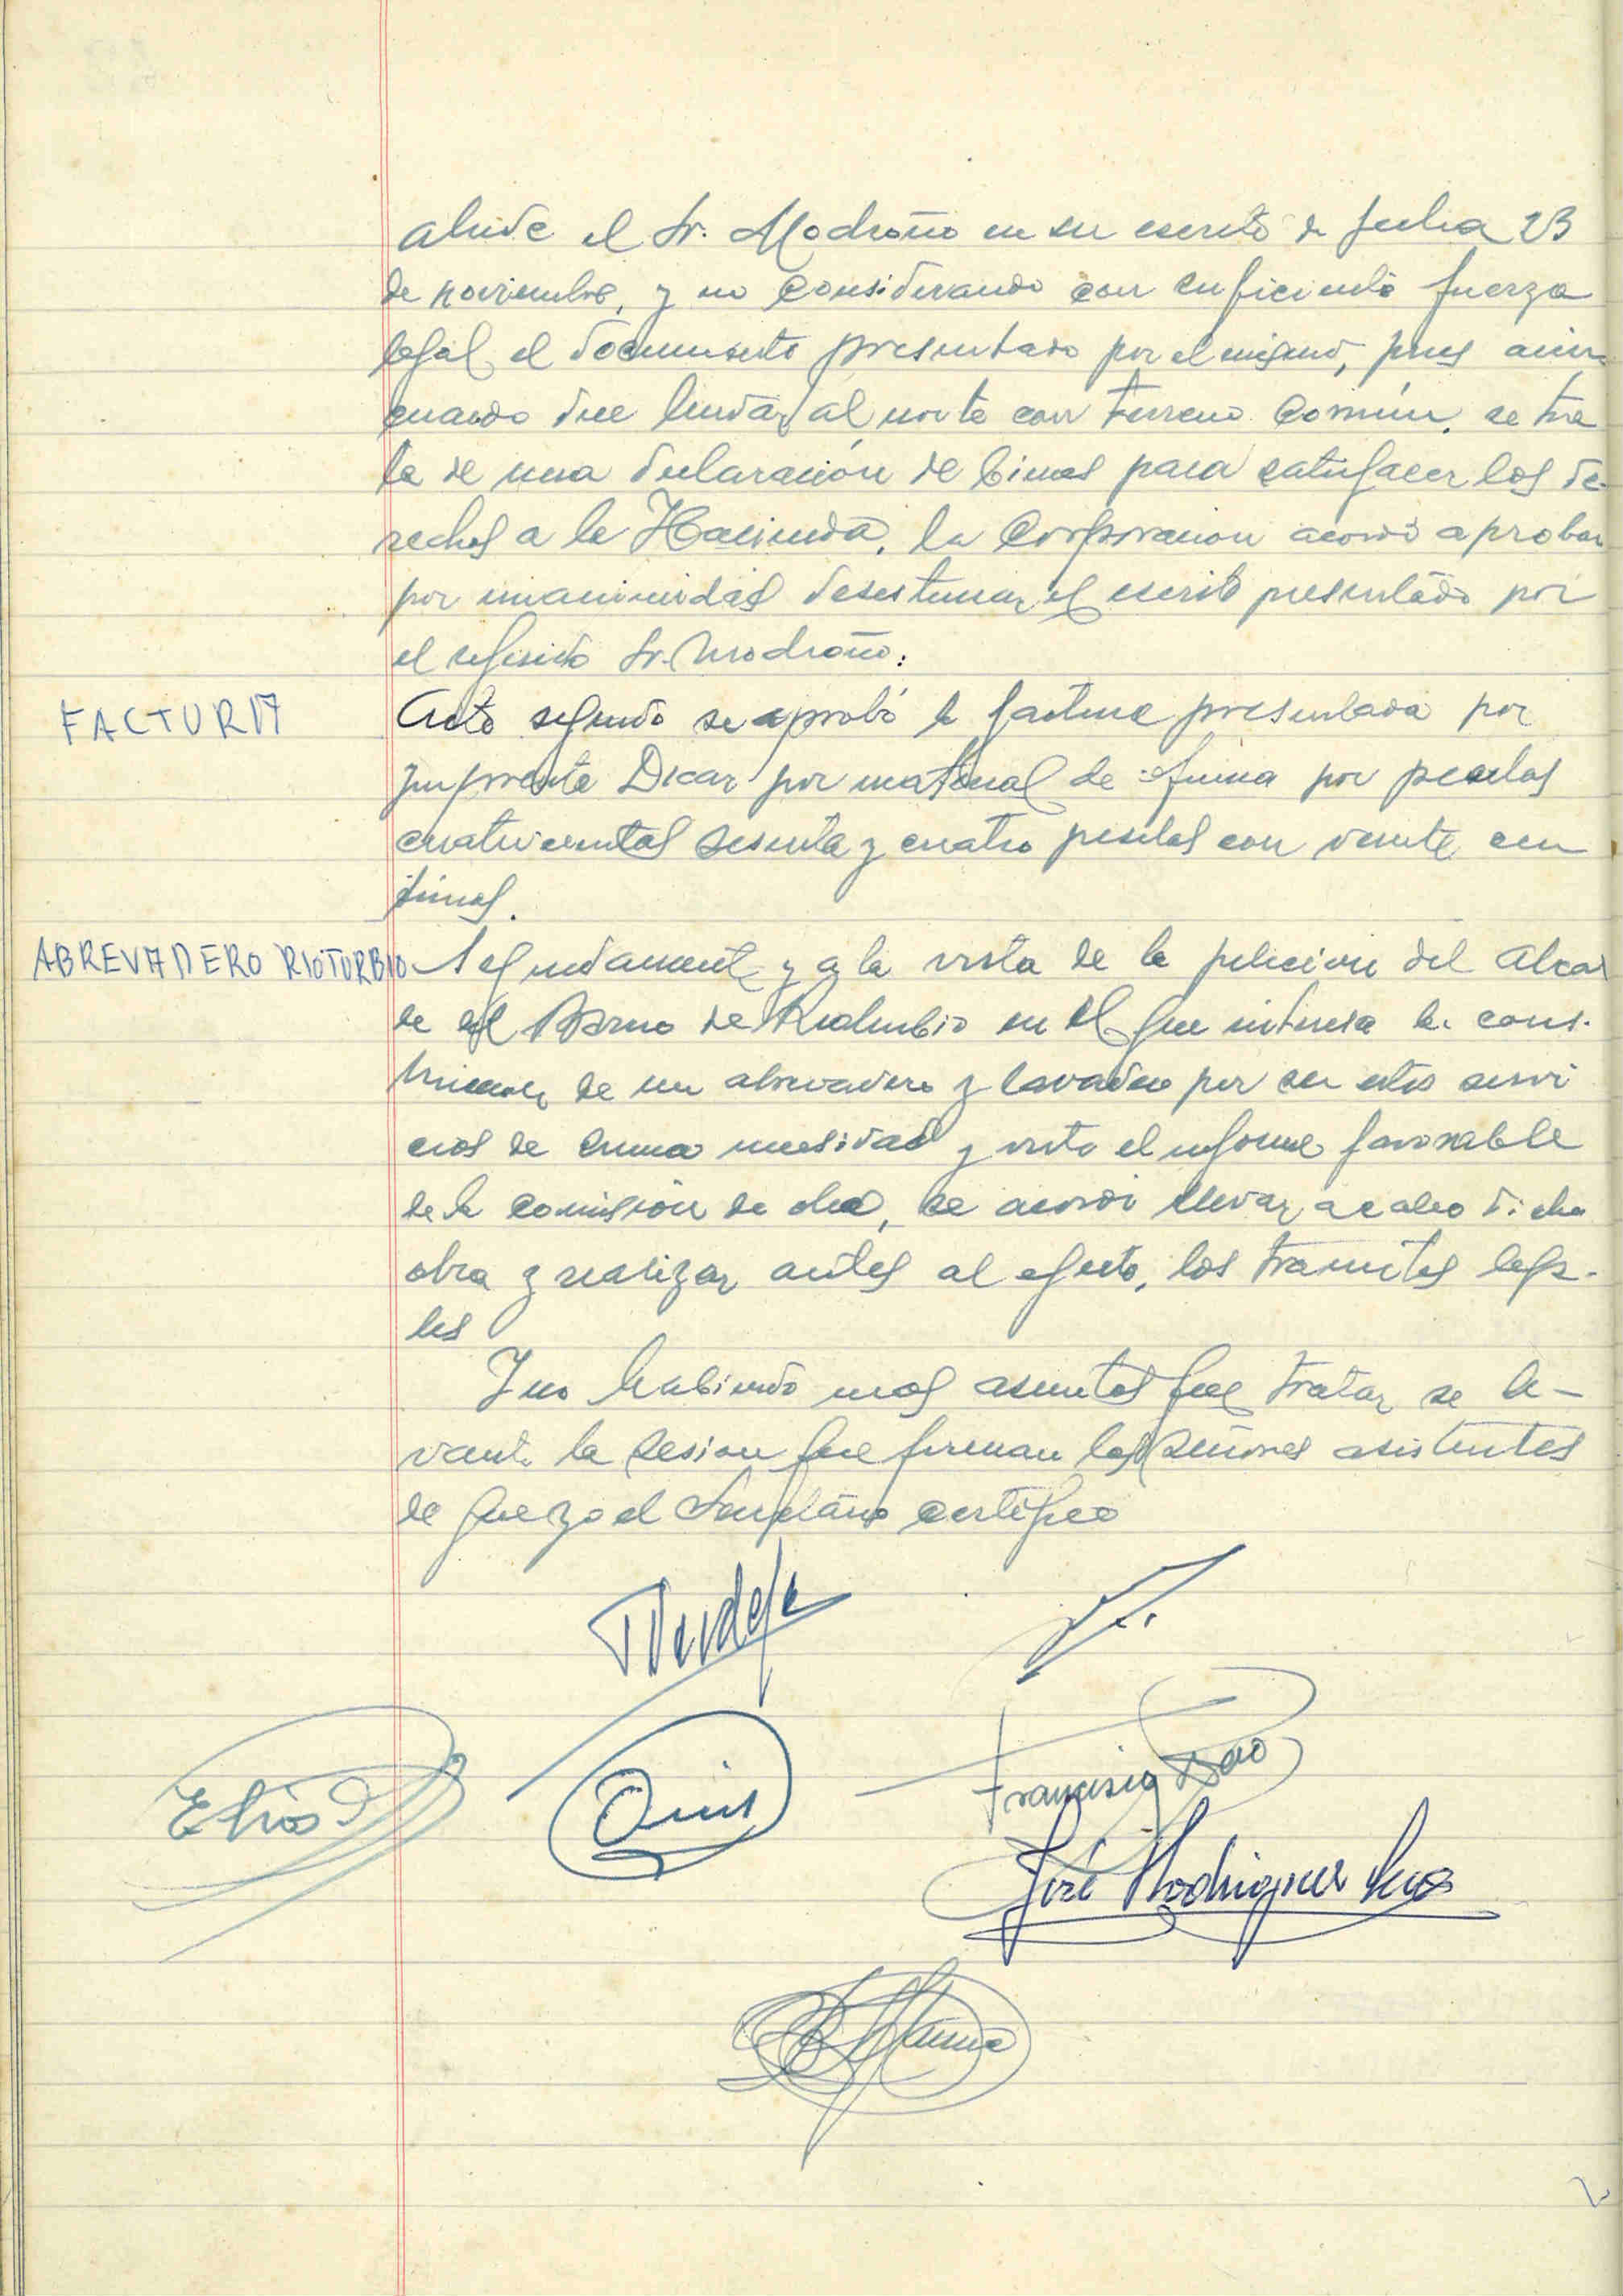 alude el Sr. Modroño en su escrito de fecha 23
de noviembre, y no considerando con suficiente fuerza
legal el documento presentado por el mismo, pues aun
cuando dice lindar al norte con terreno común, se tra
ta de una declaración de bienes para satisfacer los de-
rechos a la Hacienda, la Corporacion acordó aprobar
por unanimidad desestimar el escrito presentado por
el referido Sr. Modroño.
FACTURA
Acto seguido se aprobó la factura presentada por
Imprenta Dicar por material de oficina por pesetas
cuatrocientas sesenta y cuatro pesetas con veinte cen
timos.
ABREVADERO RIOTURBIO
Seguidamente y a la vista de la peticion del Alcal
de del Barrio de Rioturbio en el que interesa la cons-
truccion de un abrevadero y lavadero por ser estos servi
cios de suma necesidad y visto el informe favorable
de la comisión de obras, se acordó llevar a cabo dicha
obra y realizar antes al efecto, los tramites lega-
les
Y no habiendo mas asuntos que tratar se le-
vanta la sesion que firman los señores asistentes
de que yo el Secretario certifico
Elias
Francisco
José Rodriguez